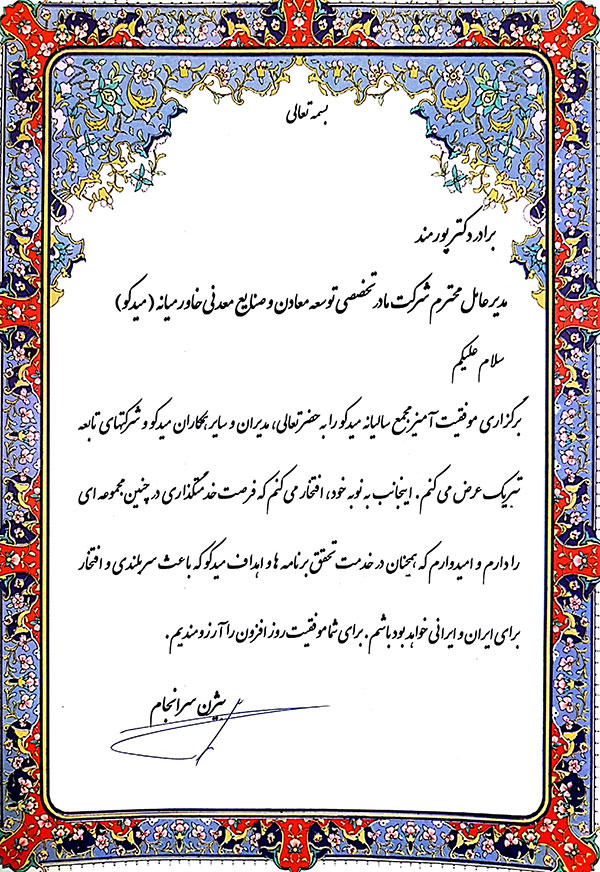 بسمه تعالی
برادر دکتر پورمند
مدیر عامل محترم شرکت مادر تخصصی توسعه معادن و صنایع معدنی خاور میانه (میدکو)
سلام علیکم
برگزاری موفقیت آمیز مجمع سالیانه میدکو را به حضرتعالی، مدیران و سایر همکاران میدکو و شرکتهای تابعه
تبریک عرض می کنم. اینجانب به نوبه خود، افتخار می کنم که فرصت خدمتگذاری در چنین مجموعه ای
را دارم و امیدوارم که همچنان در خدمت تحقق برنامه ها و اهداف میدکو که باعث سربلندی و افتخار
برای ایران و ایرانی خواهد بود باشم. برای شما موفقیت روز افزون را آرزومندیم.
بیژن سرانجام